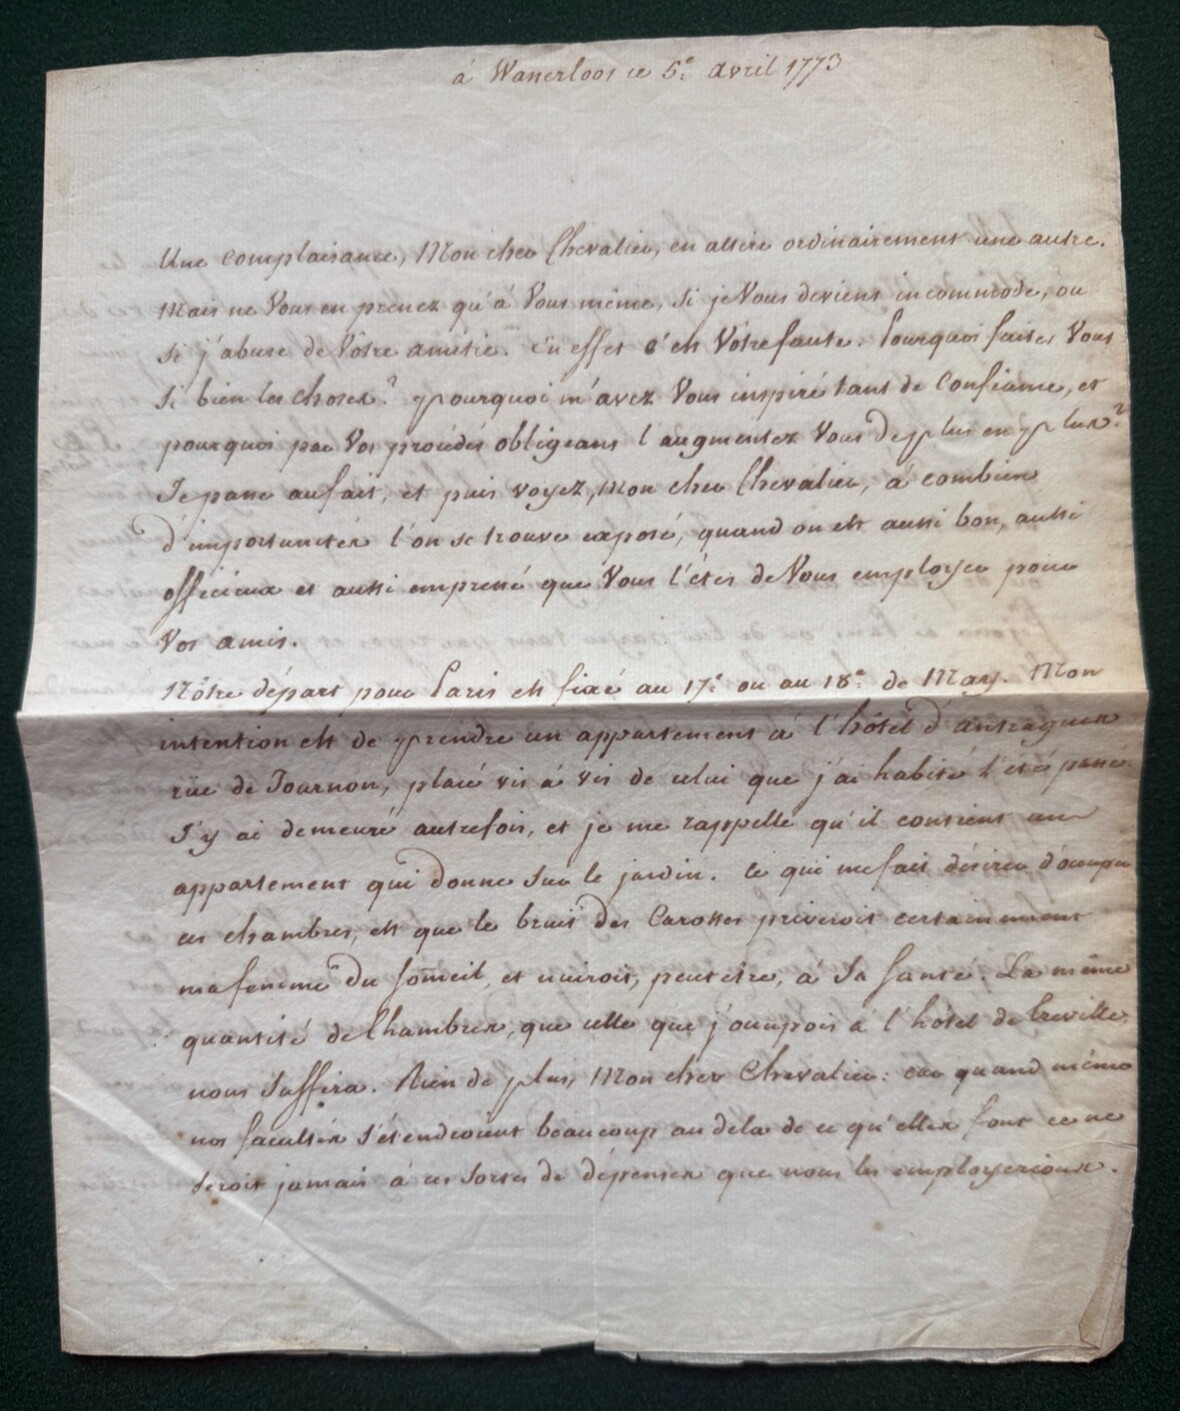 á Wanerloos ce 5.e avril 1773
Une complaisance, Mon cher Chevalier, en attire ordinairement une autre.
Mais ne Vous en prenez qu'á Vous même, si je Vous deviens incommode, ou
si j'abuse de Votre amitié. En effet c'est Vôtre faute. Pourquoi faites Vous
si bien les choses? pourquoi m'avez Vous inspiré tant de Confiance, et
pourquoi par Vos procédés obligeans l'augmentez Vous de plus en plus?
Je passe au fait, et puis voyez, Mon cher Chevalier, á combien
d'importunités l'on se trouve exposé, quand on est aussi bon, aussi
officieux et aussi empressé que Vous l'étes de Vous employer pour
Vos amis.
Nôtre départ pour Paris est fixé au 17.e ou au 18.e de May. Mon
intention est de prendre un appartement á l'hôtel d'antragues
rüe de Tournon, placé vis á vis de celui que j'ai habité l'été passé
J'y ai demeuré autrefois, et je me rappelle qu'il contient un
appartement qui donne sur le jardin. Ce qui me fait désirer d'occuper
ces chambres, est que le bruit des Carosses priveroit certainement
ma femme du someil, et nuiroit, peut etre, á Sa Santé. La même
quantité de Chambres, que celle que j'occupois á l'hôtel de Treville,
nous Suffira. Rien de plus, Mon cher Chevalier: car quand même
nos facultés s'étendroient beaucoup au dela de ce qu'elles sont ce ne
seroit jamais á ces sortes de dépenses que nous les employerions.